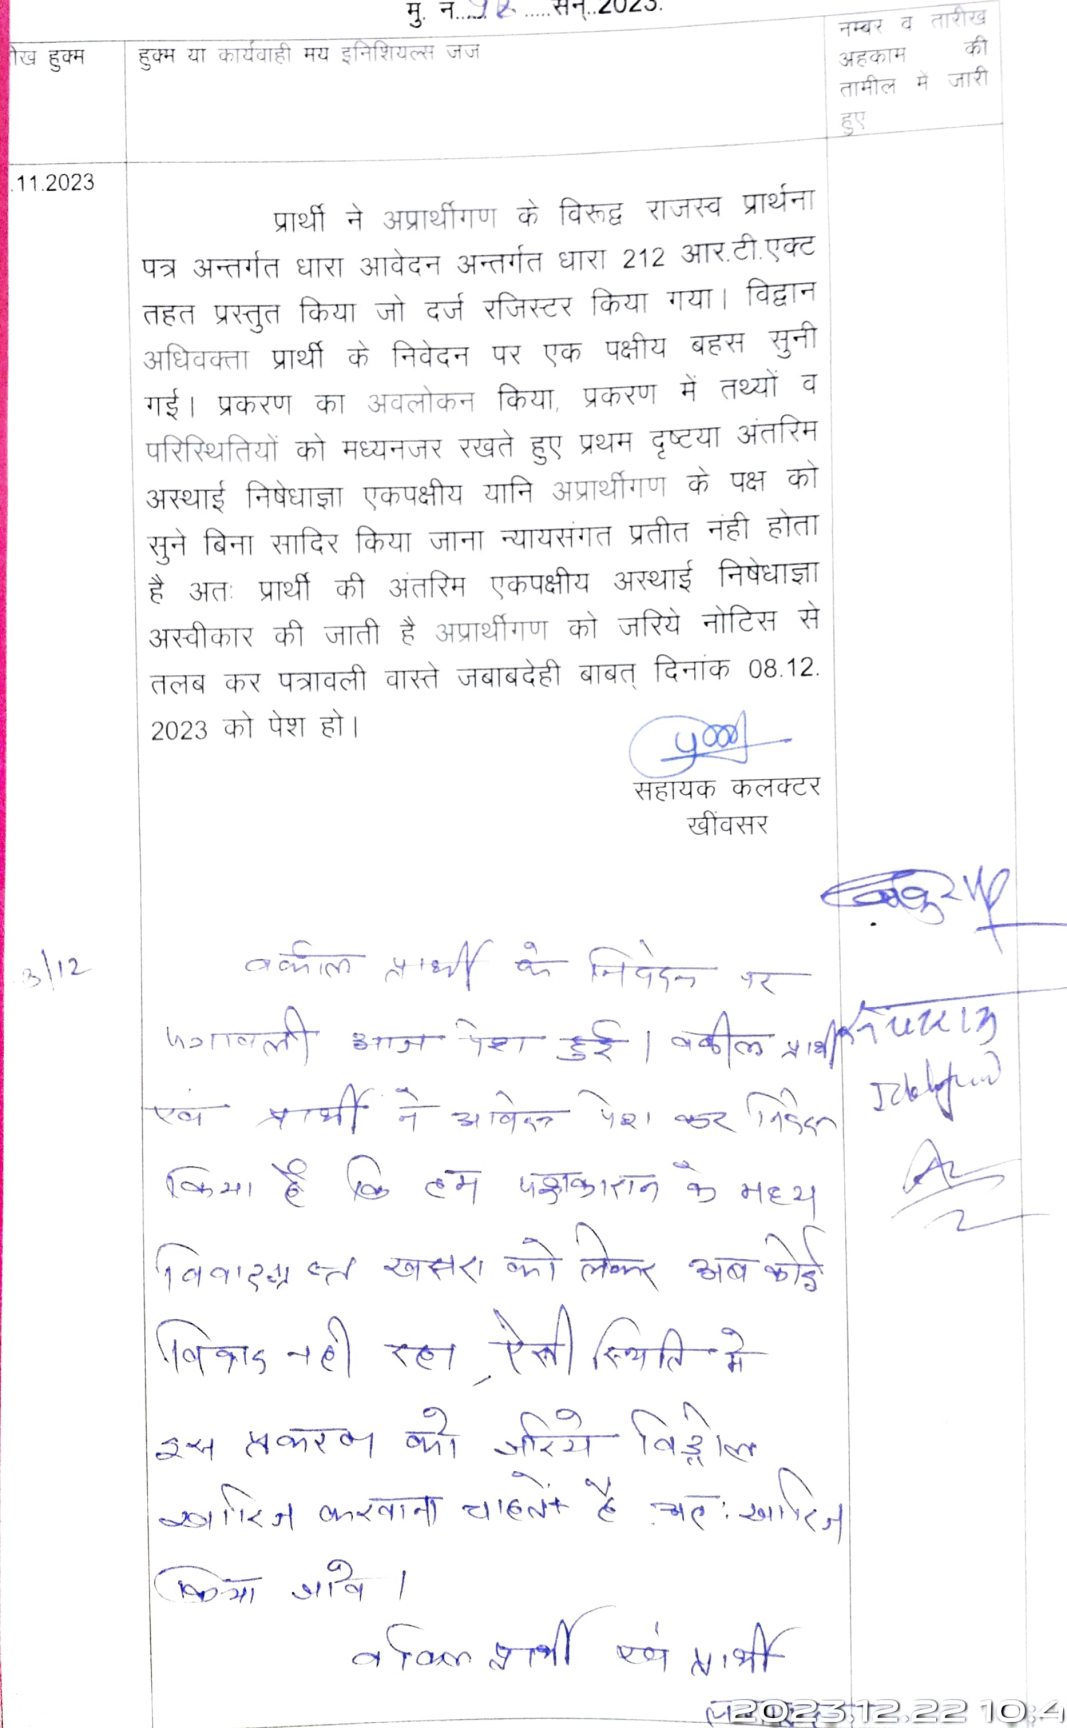 मु. न. सन्..2023.
ख हुक्म
हुक्म या कार्यवाही मय इनिशियल्स जज
नम्बर व तारीख
अहकाम की
तामील मे जारी
हुए
.11.2023
प्रार्थी ने अप्रार्थीगण के विरूद्व राजस्व प्रार्थना
पत्र अन्तर्गत धारा आवेदन अन्तर्गत धारा 212 आर.टी.एक्ट
तहत प्रस्तुत किया जो दर्ज रजिस्टर किया गया। विद्वान
अधिवक्ता प्रार्थी के निवेदन पर एक पक्षीय बहस सुनी
गई। प्रकरण का अवलोकन किया, प्रकरण में तथ्यों व
परिस्थितियों को मध्यनजर रखते हुए प्रथम दृष्टया अंतरिम
अस्थाई निषेधाज्ञा एकपक्षीय यानि अप्रार्थीगण के पक्ष को
सुने बिना सादिर किया जाना न्यायसंगत प्रतीत नंही होता
है अतः प्रार्थी की अंतरिम एकपक्षीय अस्थाई निषेधाज्ञा
अस्वीकार की जाती है अप्रार्थीगण को जरिये नोटिस से
तलब कर पत्रावली वास्ते जबाबदेही बाबत् दिनांक 08.12.
2023 को पेश हो।
सहायक कलक्टर
खींवसर
3/12
वकील प्रार्थी के निवेदन पर
पत्रावली आज पेश हुई। वकील प्रार्थी
एवं प्रार्थी ने आवेदन पेश कर निवेदन
किया है कि हम पक्षकारान के मध्य
विवादग्रस्त खसरा को लेकर अब कोई
विवाद नही रहा, ऐसी स्थिति मे
इस प्रकरण को जरिये विड्रोल
खारिज करवाना चाहते है अतः खारिज
किया जावे।
वकिल प्रार्थी एवं प्रार्थी
2023.12.22 10:4